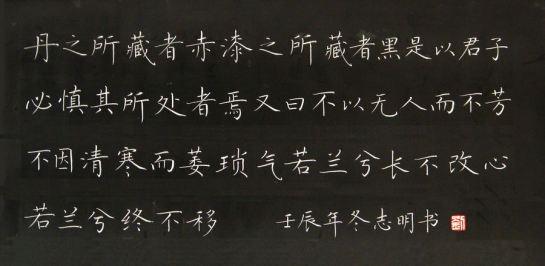 丹之所藏者赤漆之所藏者黑是以君子
必慎其所处者焉又曰不以无人而不芳
不因清寒而萎琐气若兰兮长不改心
若兰兮终不移 壬辰年冬志明书